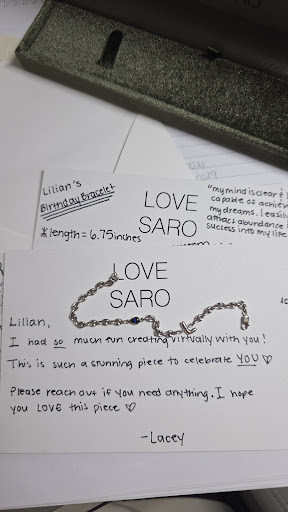 Lilian's
Birthday Bracelet
* length = 6.75 inches
LOVE
SARO
"my mind is clear &
capable of achiev
my dreams. I easily
attract abundance
success into my life
LOVE
SARO
Lilian,
I had so much fun creating virtually with you!
This is such a stunning piece to celebrate YOU ♡
Please reach out if you need anything. I hope
you LOVE this piece ♡
-Lacey